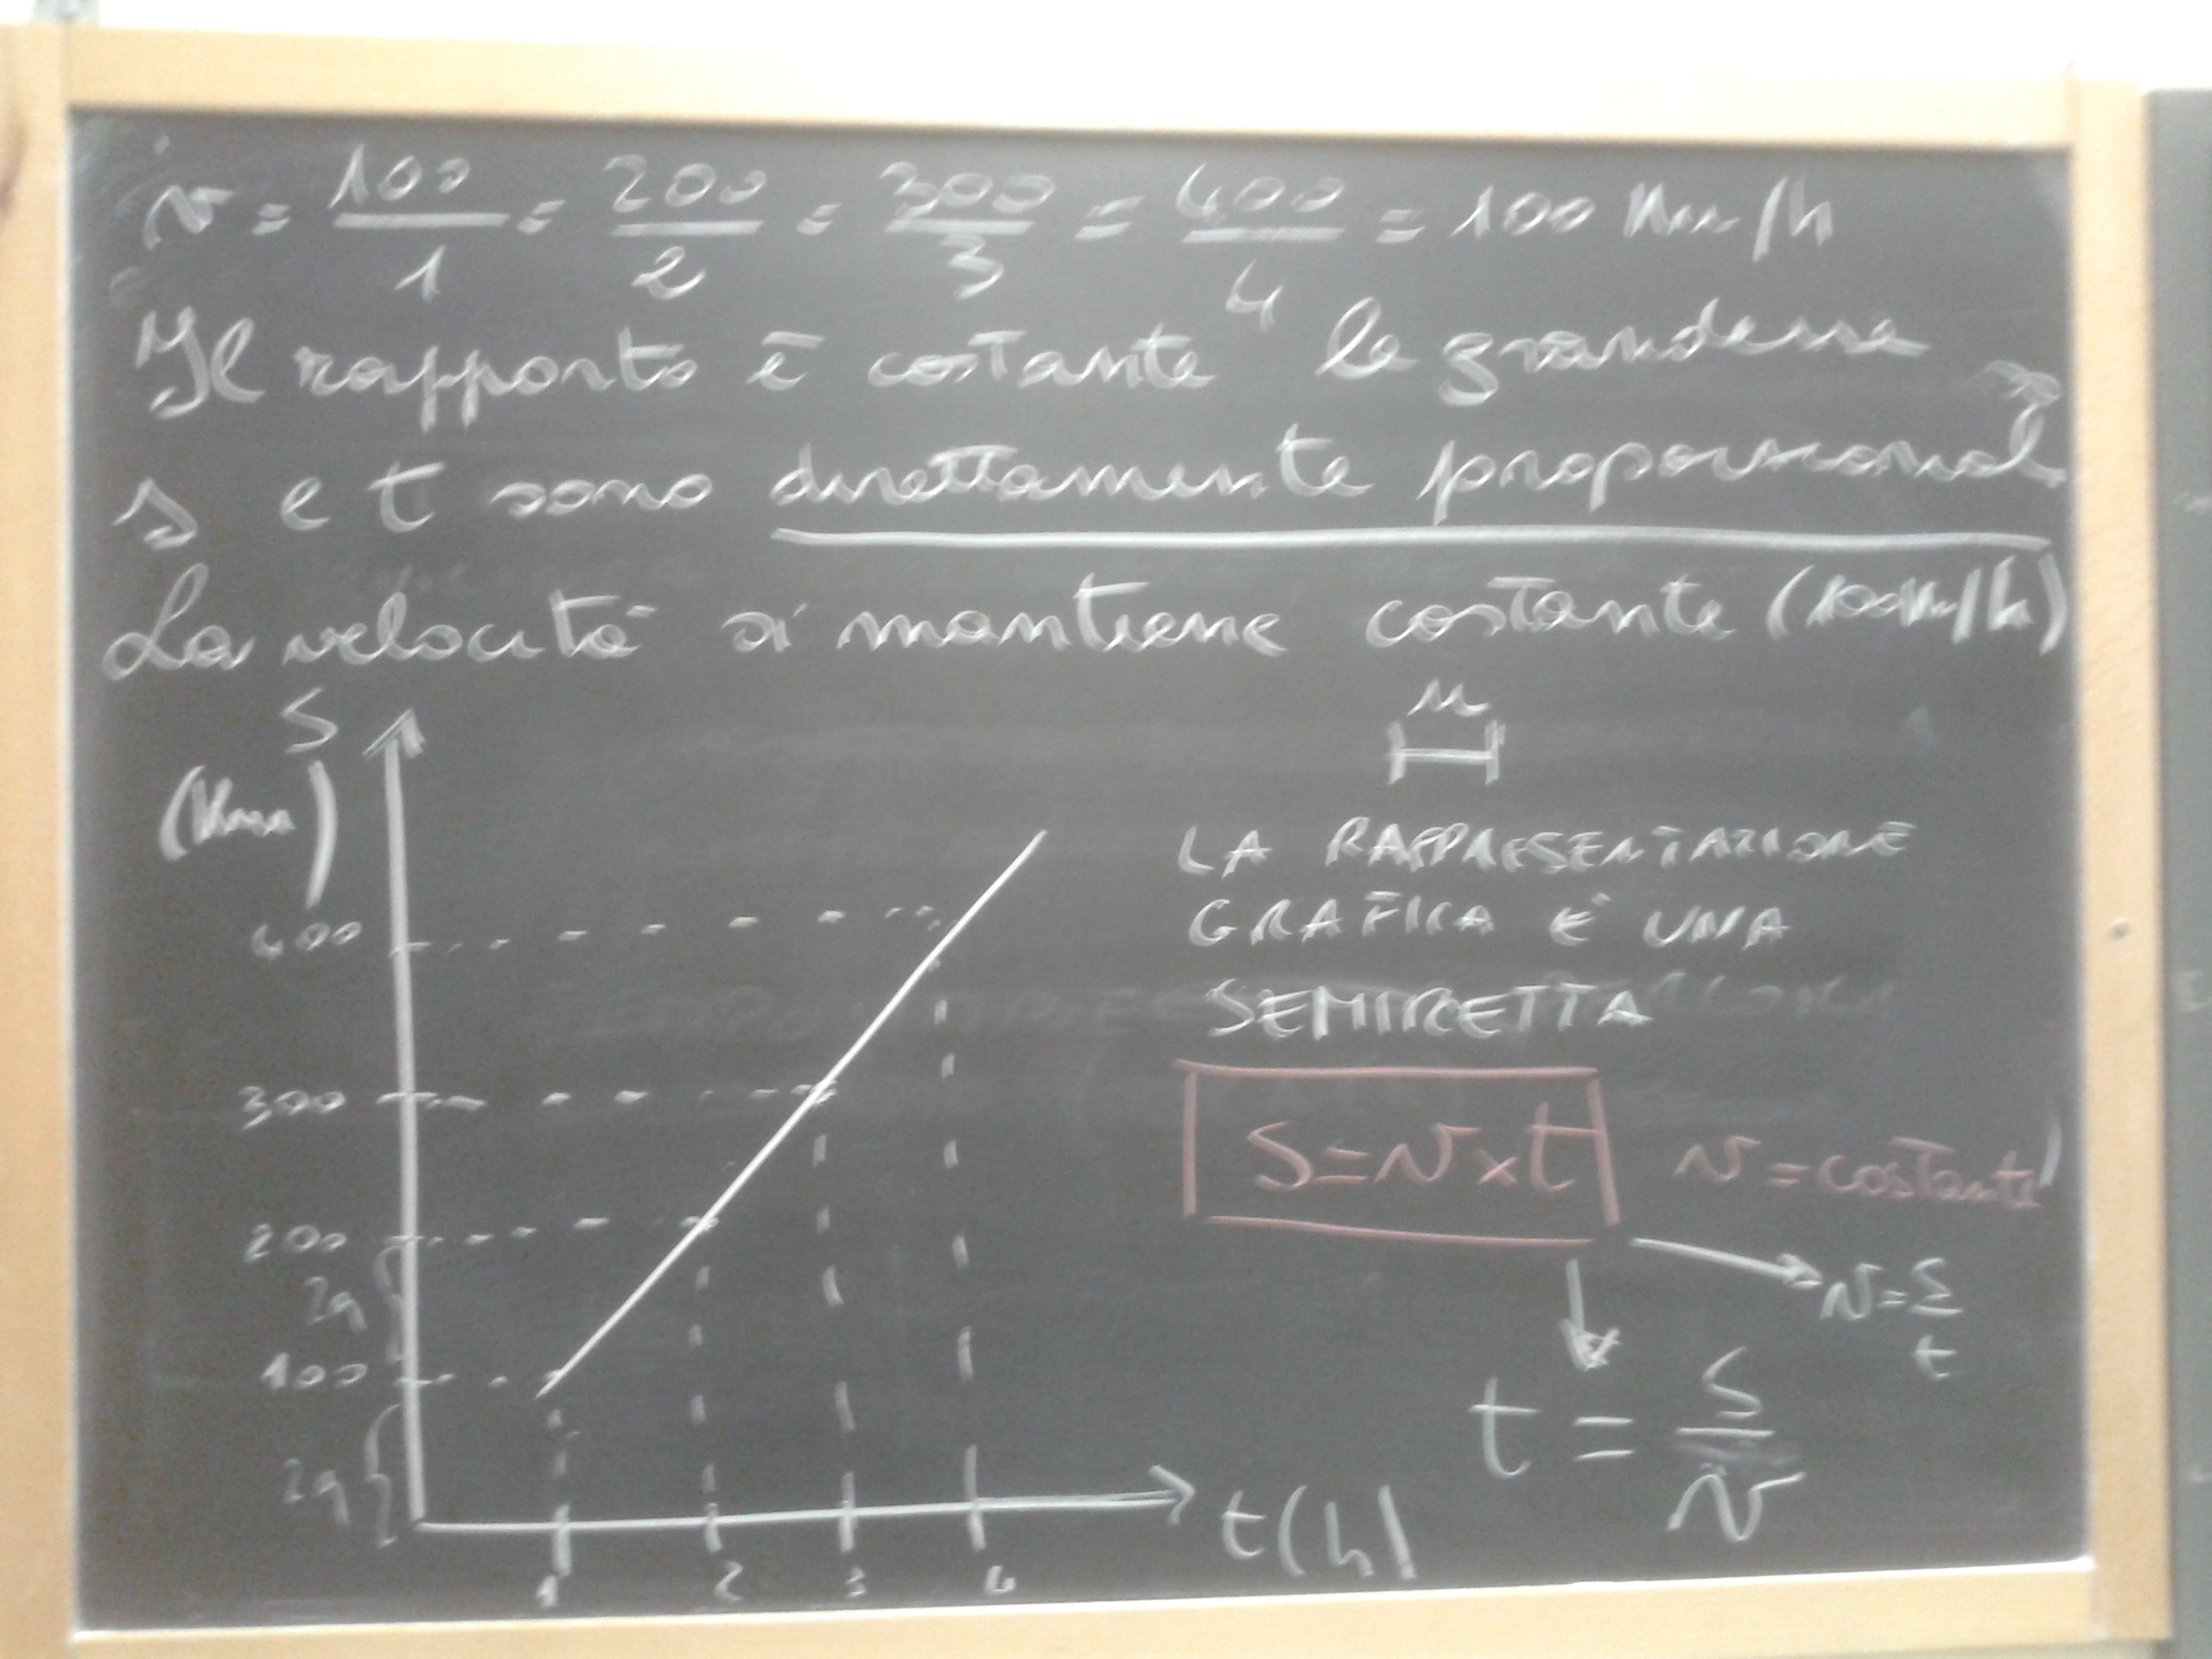 v = 100/1 = 200/2 = 300/3 = 400/4 = 100 Km/h
Il rapporto è costante le grandezze
s e t sono direttamente proporzionali
La velocità si mantiene costante (100Km/h)
S
(Km)
u
400
300
200
2q
100
2q
1 2 3 4
t(h)
LA RAPPRESENTAZIONE
GRAFICA E' UNA
SEMIRETTA
S=v×t v=costante
v=S/t
t = S/v